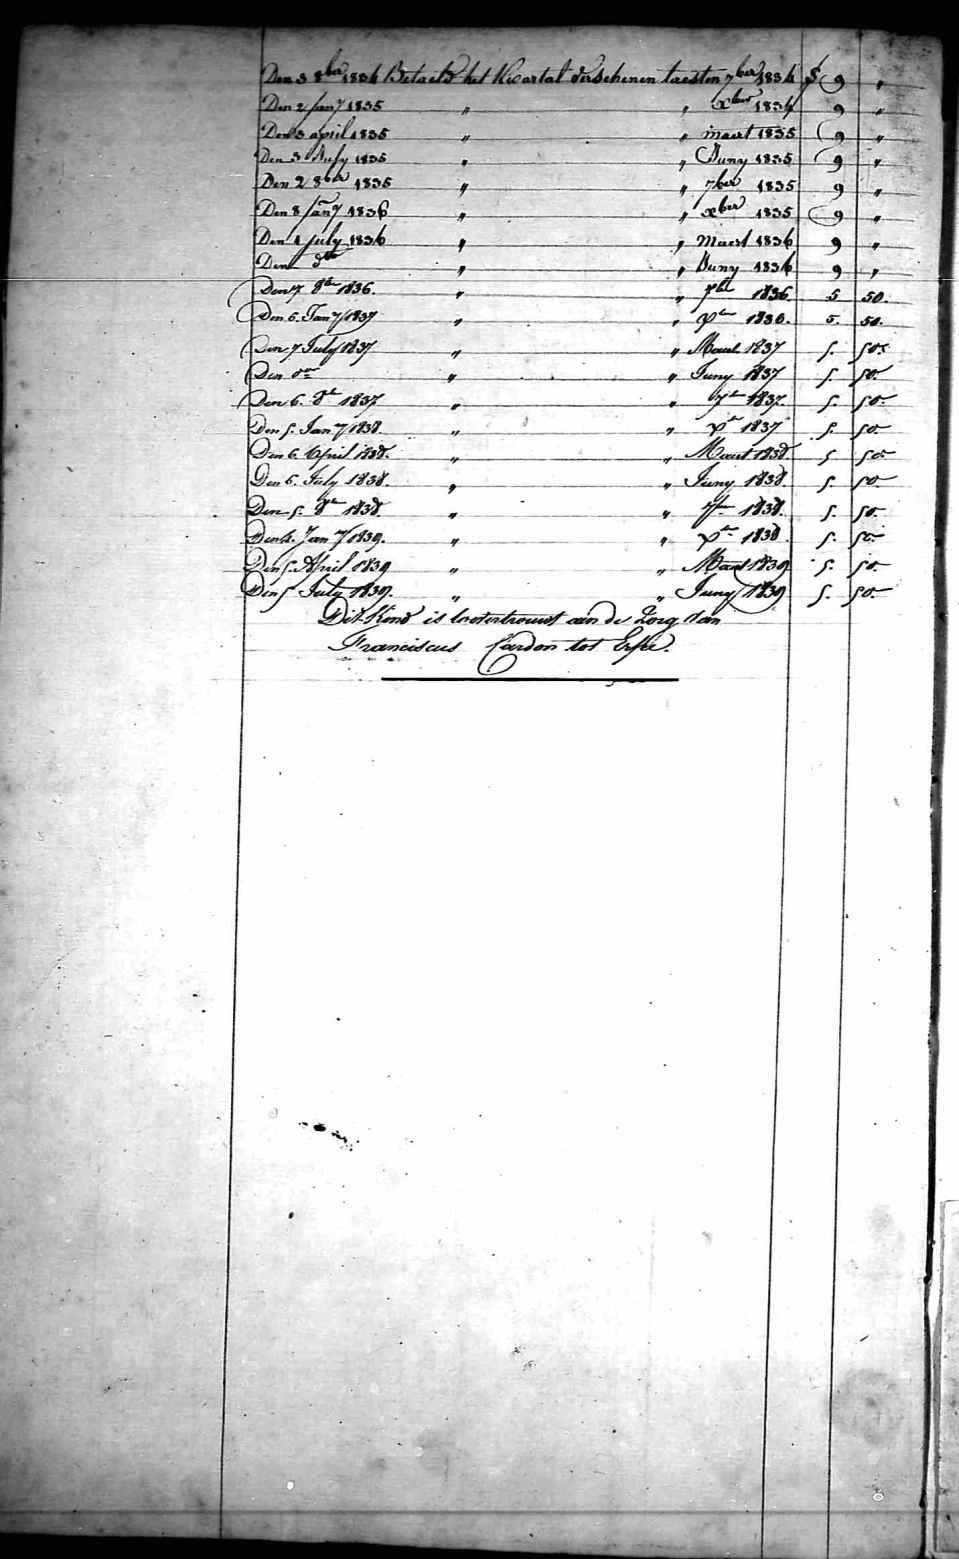 Den 3 8ber 1834 Betaeld het Kwartal verschenen laesten 7ber 1834 9 "
Den 2 Jany 1835 " " xber 1834 9 "
Den 3 april 1835 " " maert 1835 9 "
Den 3 July 1835 " " Juny 1835 9 "
Den 2 8ber 1835 " " 7ber 1835 9 "
Den 8 Jany 1836 " " xber 1835 9 "
Den 1 july 1836 " " Maert 1836 9 "
Den do " " Juny 1836 9 "
Den 7 8br 1836. " " 7br 1836 5 50.
Den 6. Jany 1837 " " xbr 1836. 5. 50.
Den 7 July 1837 " " Maart 1837 5. 50.
Den do " " Juny 1837 5. 50.
Den 6. 8br 1837 " " 7br 1837. 5. 50.
Den 5. Jany 1838. " " xbr 1837 5. 50.
Den 6. April 1838. " " Maart 1838. 5 50.
Den 6. July 1838. " " Juny 1838. 5. 50.
Den 5. 8br 1838. " " 7br 1838. 5. 50.
Den 4. Jany 1839. " " xbr 1838. 5. 50.
Den 5. April 1839 " " Maart 1839 5. 50.
Den 5 July 1839. " " Juny 1839 5. 50.
Dit Kind is toevertrouwt aen de Zorg van
Franciscus Cardon tot Erpe.